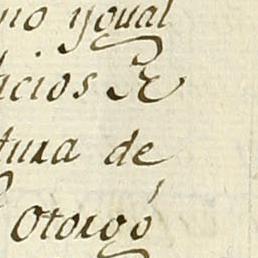 no ygual
acios R
tura de
Otorgó